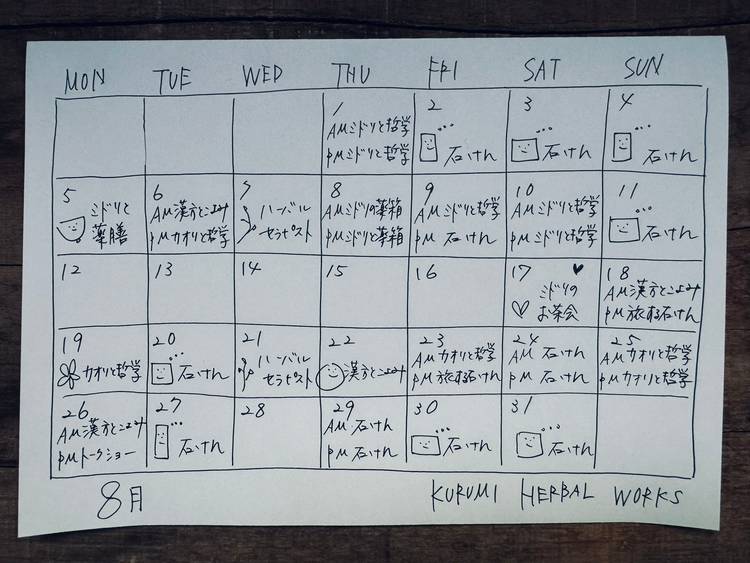 MON TUE WED THU FRI SAT SUN
1
AMミドリと哲学
PMミドリと哲学
2
石けん
3
石けん
4
石けん
5
ミドリと
薬膳
6
AM漢方とこよみ
PMカオリと哲学
7
ハーバル
セラピスト
8
AMミドリの薬箱
PMミドリと薬箱
9
AMミドリと哲学
PM 石けん
10
AMミドリと哲学
PMミドリと哲学
11
石けん
12
13
14
15
16
17
ミドリの
お茶会
18
AM漢方とこよみ
PM旅する石けん
19
カオリと哲学
20
石けん
21
ハーバル
セラピスト
22
漢方とこよみ
23
AMカオリと哲学
PM旅する石けん
24
AM 石けん
PM 石けん
25
AMカオリと哲学
PMカオリと哲学
26
AM漢方とこよみ
PMトークショー
27
石けん
28
29
AM 石けん
PM 石けん
30
石けん
31
石けん
8月
KURUMI HERBAL WORKS